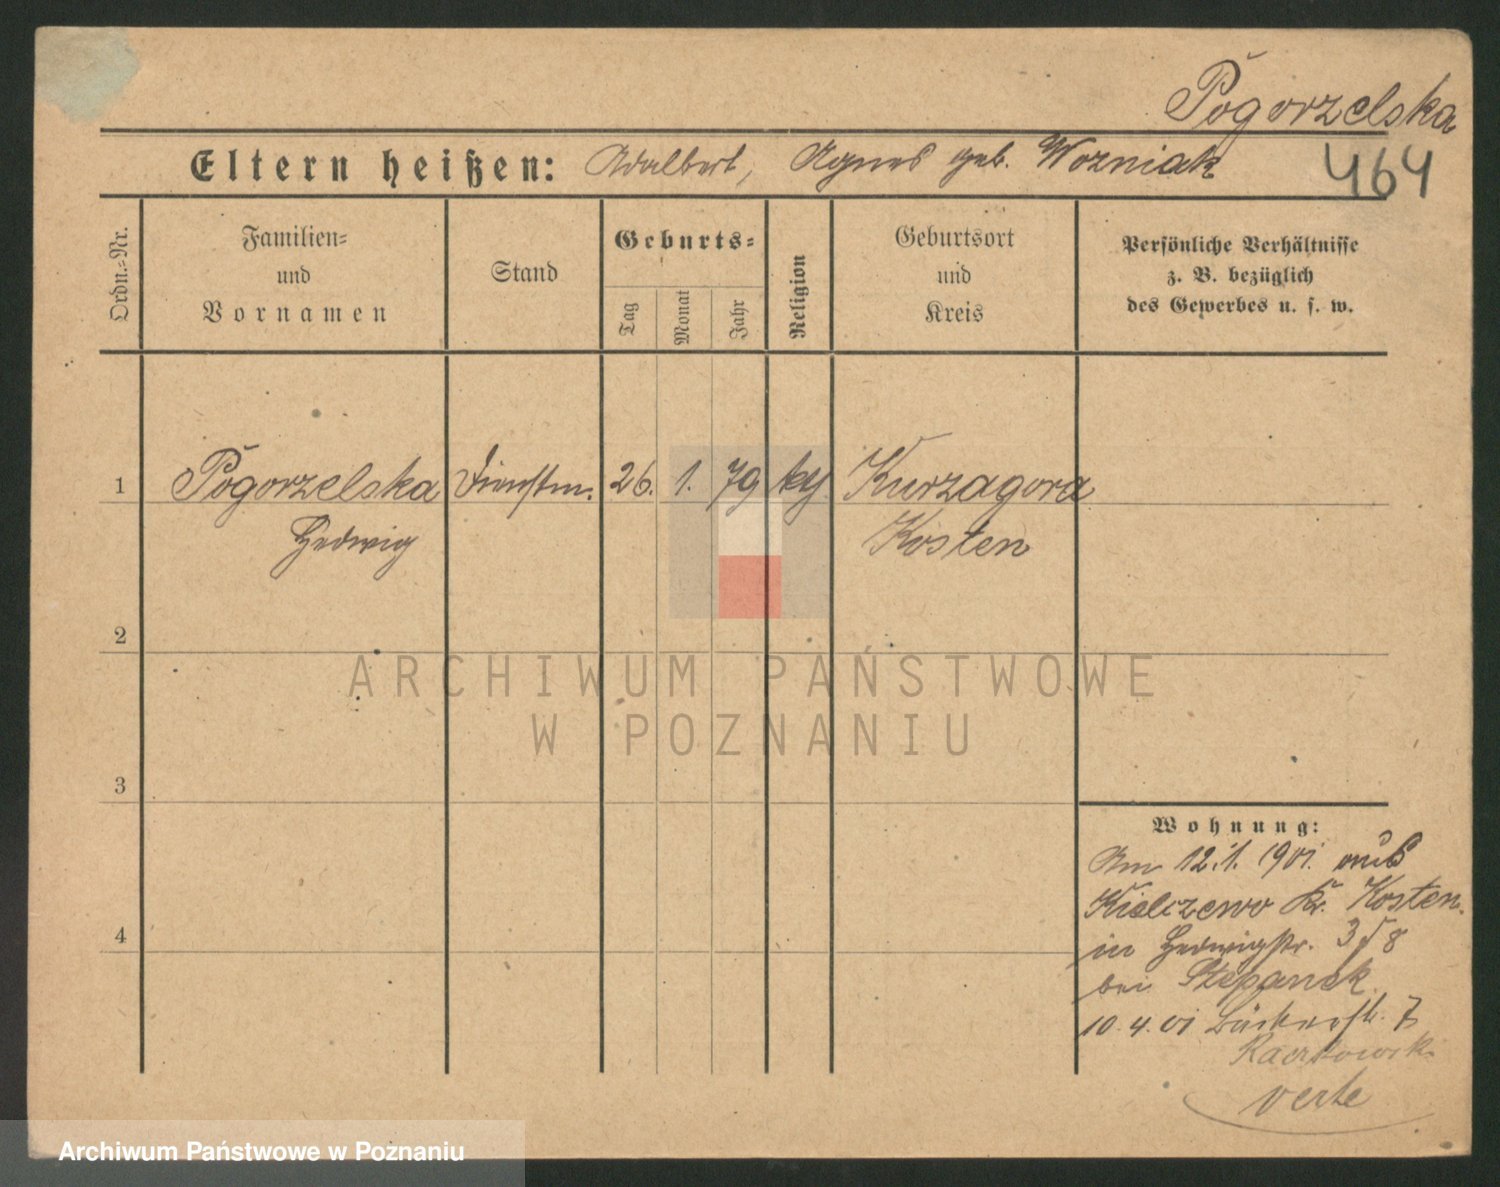 Pogorzelska
Eltern heißen: Adalbert, Agnes geb. Wozniak
464
Ordn.-Nr.
Familien-
und
Vornamen
Stand
Geburts-
Tag
Monat
Jahr
Religion
Geburtsort
und
Kreis
Persönliche Verhältnisse
z. B. bezüglich
des Gewerbes u. s. w.
1 Pogorzelska Dienstm. 26. 1. 79 Kurzagora
Hedwig Kosten
2
ARCHIWUM PAŃSTWOWE
W POZNANIU
3
4
Wohnung:
Am 12.1.1901. aus
Kielczewo Kr. Kosten.
in Hedwigstr. 3 8
bei Stepanek.
10.4.01 Bäckerstr. 7
verte
Archiwum Państwowe w Poznaniu